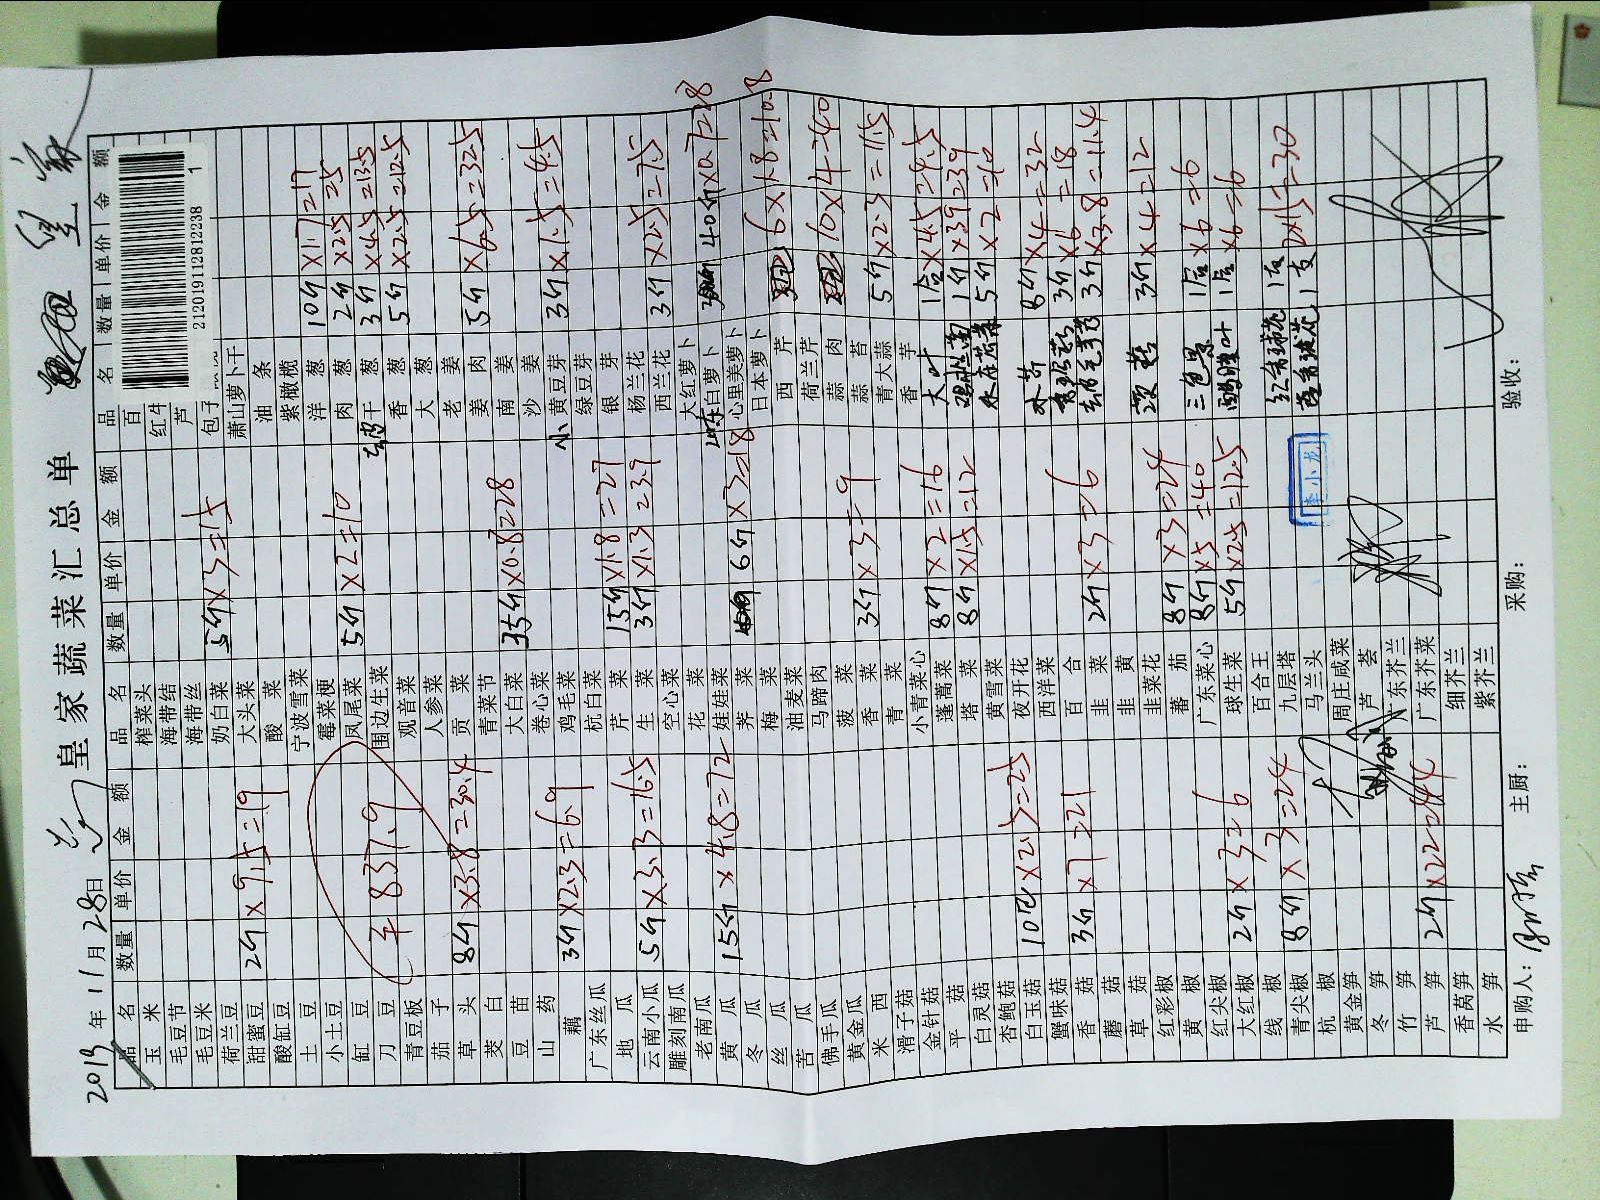 2019年11月28日
皇家蔬菜汇总单
品名 数量 单价 金额
玉米
毛豆节
毛豆米
荷兰豆
甜蜜豆 2斤 ×9.5=19
酸缸豆
土豆
小土豆
缸豆
刀豆
青豆板
茄子
草头 8斤 ×3.8=30.4
茭白
豆苗
山药
藕 3斤 ×2.3=6.9
广东丝瓜
地瓜
云南小瓜 5斤 ×3.3=16.5
雕刻南瓜
老南瓜
黄瓜 15斤 ×4.8=72
冬瓜
丝瓜
苦瓜
佛手瓜
黄金瓜
米西
滑子菇
金针菇
平菇
白灵菇
杏鲍菇
白玉菇 10包 ×2.5=25
蟹味菇
香菇 3斤 ×7=21
蘑菇
草菇
红彩椒
黄椒
红尖椒
大红椒 2斤 ×3=6
线椒
青尖椒 8斤 ×3=24
杭椒
黄金笋
冬笋
竹笋
芦笋 2斤 ×22=44
香莴笋
水笋
837.9
品名 数量 单价 金额
榨菜头
海带结
海带丝
奶白菜 5斤 ×3=15
大头菜
酸菜
宁波雪菜
霉菜梗
凤尾菜 5斤 ×2=10
围边生菜
观音菜
人参菜
贡菜
青菜节
大白菜 35斤 ×0.8=28
卷心菜
鸡毛菜
杭白菜
芹菜 15斤 ×1.8=27
生菜 3斤 ×1.3=3.9
空心菜
花菜
娃娃菜
荠菜 6斤 ×3=18
梅菜
油麦菜
马蹄肉
菠菜
香菜 3斤 ×3=9
青菜
小青菜心
蓬蒿菜 8斤 ×2=16
塔菜 8斤 ×1.5=12
黄雪菜
夜开花
西洋菜
百合
韭菜 2斤 ×3=6
韭黄
韭菜花
蕃茄 8斤 ×3=24
广东菜心 8斤 ×5=40
球生菜 5斤 ×2.5=12.5
百合王
九层塔
马兰头
周庄咸菜
芦荟
广东芥兰
广东芥菜
细芥兰
紫芥兰
李小龙
品名 数量 单价 金额
212019112812238 1
百
红牛
芦
包子
萧山萝卜干
油条
紫橄榄
洋葱 10斤 ×1.7=17
肉葱 2斤 ×2.5=5
干葱 3斤 ×4.5=13.5
香葱 5斤 ×2.5=12.5
大葱
老姜
姜肉 5斤 ×6.5=32.5
南姜
沙姜
小黄豆芽 3斤 ×1.5=4.5
绿豆芽
银芽
杨兰花
西兰花 3斤 ×2.5=7.5
大红萝卜
白萝卜 40斤 ×0.7=28
心里美萝卜
日本萝卜 6×1.8=10.8
西芹
荷兰芹 10×4=40
蒜肉
蒜苔 5斤 ×2.3=11.5
青大蒜
香芋 1盒 ×4.5=4.5
大叶 1斤 ×39=39
5斤 ×2=10
8斤 ×4=32
3斤 ×6=18
3斤 ×3.8=11.4
3斤 ×4=12
三色堇 1盒 ×6=6
1盒 ×6=6
2×15=30
申购人：
主厨：
采购：
验收：